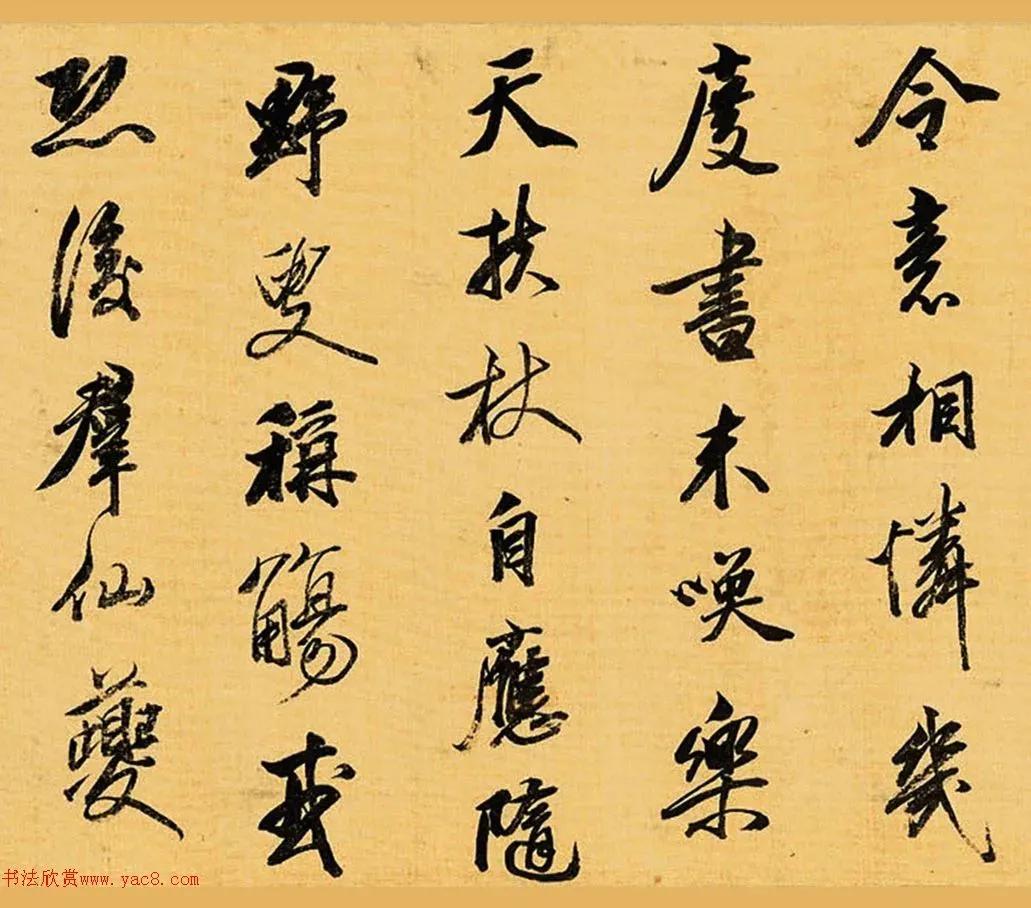 令意相憐幾
度書来喚樂
天扶杖自應隨
野叟稱觴或
恐後羣仙夔
书法欣赏www.yac8.com